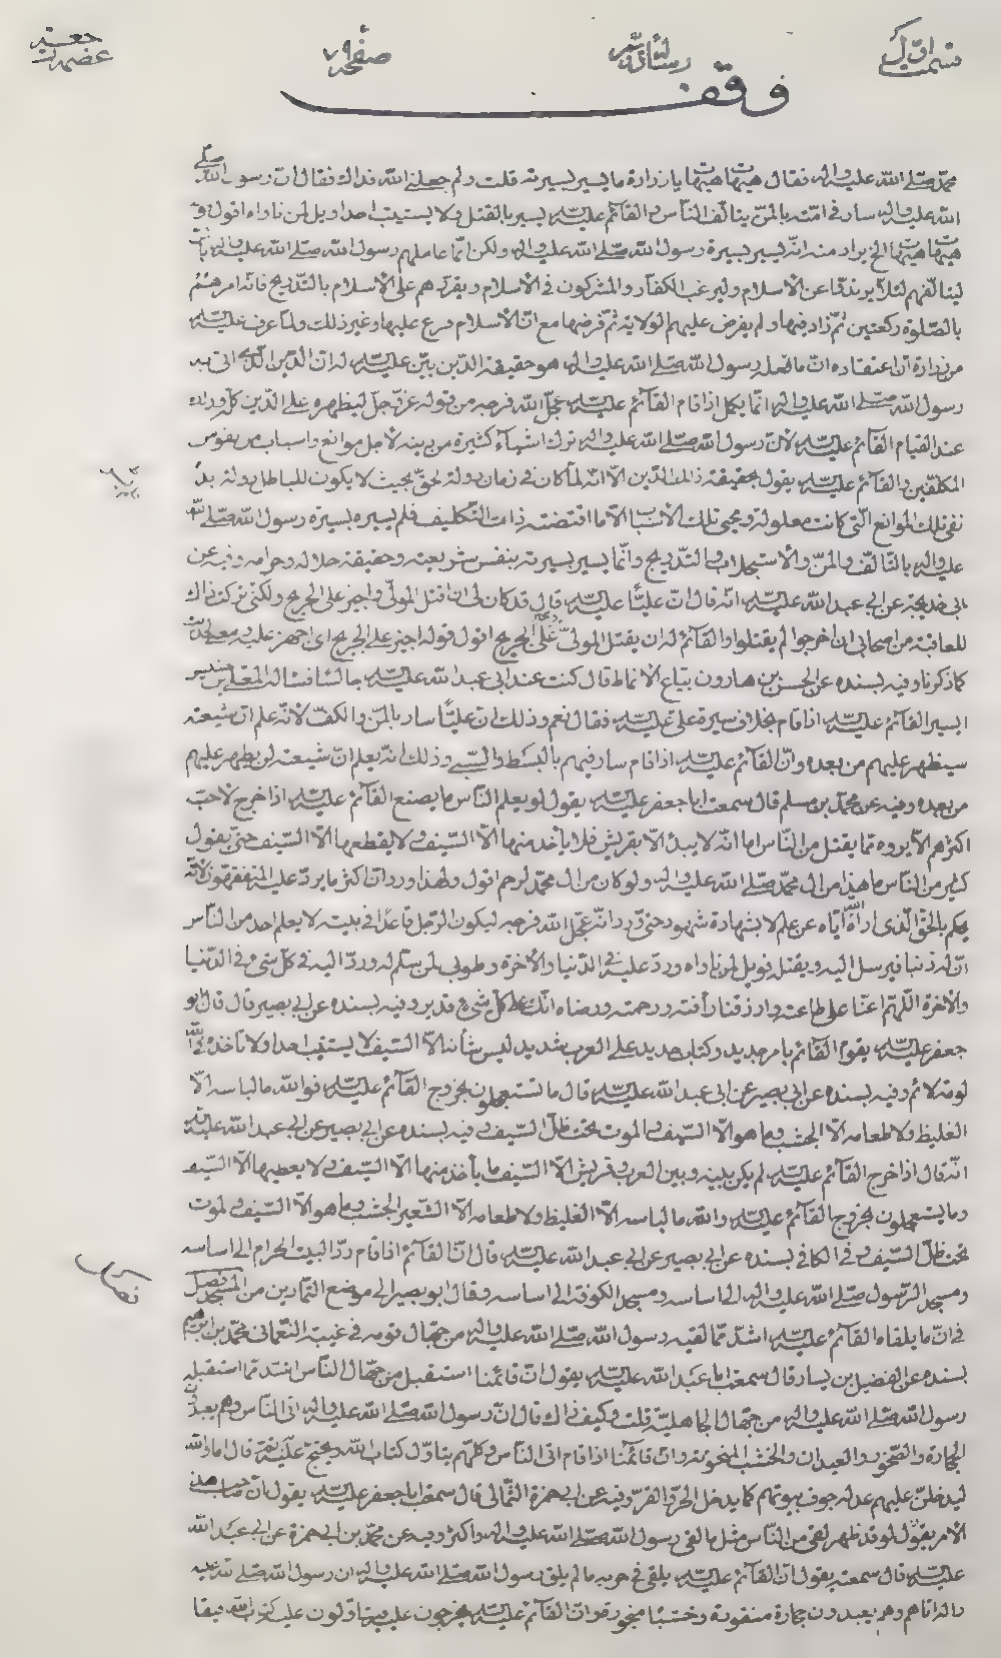 قسمت اوّل
رسائل
صفحه ٧٩
وقف
محمّد صلّى الله عليه واله فقال هيهات هيهات يا زرارة ما يسير بسيرته قلت ولم جعلنى الله فداك فقال انّ رسول الله صلّى
الله عليه واله سار فى امّته بالمنّ يتألّف النّاس والقآئم عليه السّلم يسير بالقتل ولا يستتيب احدا ويل لمن ناواه اقول
هيهات هيهات الخ يراد منه انّه يسير بسيرة رسول الله صلّى الله عليه واله ولكن انّما عاملهم رسول الله صلّى الله عليه واله
ليتألّفهم لئلّا يرتدّوا عن الاسلام وليرغب الكفّار والمشركون فى الاسلام ويقرّهم على الاسلام بالتّدريج فانّه امرهم
بالصّلوة ركعتين ثمّ زاد فيها ولم يفرض عليهم الولاية ثمّ فرضها مع انّ الاسلام فرع عليها وغير ذلك ولمّا عرف عليه السّلم
من زرارة انّ اعتقاده انّ ما فعله رسول الله صلّى الله عليه واله هو حقيقة الدّين بيّن عليه السّلم له انّ الدّين الّذى اتى به
رسول الله صلّى الله عليه واله انّما يكمل اذا قام القآئم عليه السّلم عجّل الله فرجه من قوله عزّ وجلّ ليظهره على الدّين كلّه
عند القيام القآئم عليه السّلم لانّ رسول الله صلّى الله عليه واله ترك اشيآء كثيرة من دينه لاجل موانع واسباب من نفوس
المكلّفين والقآئم عليه السّلم يقول بحقيقة ذلك الدّين الّا انّه لمّا كان فى زمان دولة الحقّ بحيث لا يكون للباطل دولة
نفى تلك الموانع الّتى كانت معلولة ومحيى تلك الاسباب الّا ما اقتضته ذات التّكليف فلم يسيره بسيرة رسول الله صلّى الله
عليه واله بالتّألّف والمنّ والاستجلاب والتّدريج وانّما يسير بسيرته بنفس شريعته وحقيقة حلاله وحرامه وفيه عن
ابى خديجة عن ابى عبد الله عليه السّلم انّه قال انّ عليّا عليه السّلم قال قد كان لى ان اقتل المولّى واجيز على الجريح ولكنّى تركت ذاك
للعاقبة من اصحابى ان اخرجوا لم يقتلوا والقآئم له ان يقتل المولّى على الجريح اقول قوله اجيز على الجريح اى اجهز عليه
كما ذكرنا وفيه بسنده عن الحسن بن هارون بيّاع الانماط قال كنت عند ابى عبد الله عليه السّلم جالسا فساله المعلّى بن خنيس
ايسير القآئم عليه السّلم اذا قام بخلاف سيرة علىّ عليه السّلم فقال نعم وذلك انّ عليّا سار بالمنّ والكفّ لانّه علم انّ شيعته
سيظهر عليهم من بعده وانّ القآئم عليه السّلم اذا قام سار فيهم بالبسط والسّبى وذلك انّه يعلم انّ شيعته لن يظهر عليهم
من بعده وفيه عن محمّد بن مسلم قال سمعت ابا جعفر عليه السّلم يقول لو يعلم النّاس ما يصنع القآئم عليه السّلم اذا خرج لاحبّ
اكثرهم الّا يروه ممّا يقتل من النّاس اما انّه لا يبدأ الّا بقريش فلا يأخذ منها الّا السّيف ولا يقطعها الّا السّيف حتّى يقول
كثير من النّاس ما هذا من ال محمّد صلّى الله عليه واله ولو كان من ال محمّد لرحم اقول ولهذا ورد انّ اكثر ما يردّ عليه المتفقّهون لانّه
يحكم بالحقّ الّذى اراه الله ايّاه عن علم لا بشهادة شهود حتّى ورد انّه عجّل الله فرجه ليكون الرّجل قاعدا فى بيته لا يعلم احد من النّاس
انّ له ذنبا فيرسل اليه ويقتله فويل لمن ناواه وردّ عليه فى الدّنيا والاخرة وطوبى لمن سلّم له وردّ اليه فى كلّ شىء فى الدّنيا
والاخرة اللّهمّ اعنّا على طاعته وارزقنا رأفته ورحمته ورضاه انّك على كلّ شىء قدير وفيه بسنده عن ابى بصير قال قال ابو
جعفر عليه السّلم يقوم القآئم بامر جديد وكتاب جديد على العرب شديد ليس شأنه الّا السّيف لا يستتيب احدا ولا تأخذه فى الله
لومة لائم وفيه بسنده عن ابى بصير عن ابى عبد الله عليه السّلم قال ما تستعجلون بخروج القآئم عليه السّلم فوالله ما لباسه الّا
الغليظ ولا طعامه الّا الجشب وما هو الّا السّيف والموت تحت ظلّ السّيف وفيه بسنده عن ابى بصير عن ابى عبد الله عليه السّلم
انّه قال اذا خرج القآئم عليه السّلم لم يكن بينه وبين العرب وقريش الّا السّيف ما يأخذ منها الّا السّيف ولا يعطيها الّا السّيف
وما يستعجلون بخروج القآئم عليه السّلم والله ما لباسه الّا الغليظ ولا طعامه الّا الشّعير الجشب وما هو الّا السّيف والموت
تحت ظلّ السّيف وفى الكافى بسنده عن ابى بصير عن ابى عبد الله عليه السّلم قال انّ القآئم اذا قام ردّ البيت الحرام الى اساسه
ومسجد الرّسول صلّى الله عليه واله الى اساسه ومسجد الكوفة الى اساسه وقال ابو بصير الى موضع التّمارين من المسجد فصل
فى انّ ما يلقاه القآئم عليه السّلم اشدّ ممّا لقيه رسول الله صلّى الله عليه واله من جهّال قومه فى غيبة النّعمانى محمّد بن ابرهيم
بسنده عن الفضيل بن يسار قال سمعت ابا عبد الله عليه السّلم يقول انّ قائمنا استقبل من جهّال النّاس اشدّ ممّا استقبله
رسول الله صلّى الله عليه واله من جهّال الجاهليّة قلت وكيف ذاك قال انّ رسول الله صلّى الله عليه واله اتى النّاس وهم يعبدون
الحجارة والصّخور والعيدان والخشب المنحوتة وانّ قآئمنا اذا قام اتى النّاس وكلّهم يتاوّل كتاب الله ويحتجّ عليه ثمّ قال اما والله
ليدخلنّ عليهم عدله جوف بيوتهم كما يدخل الحرّ والقرّ وفيه عن ابى حمزة الثّمالى قال سمعت ابا جعفر عليه السّلم يقول انّ صاحب هذا
الامر يقول لو قد ظهر لقى من النّاس مثل ما لقى رسول الله صلّى الله عليه واله واكثر وفيه عن محمّد بن ابى حمزة عن ابى عبد الله
عليه السّلم قال سمعته يقول انّ القآئم عليه السّلم يلقى فى حربه ما لم يلق رسول الله صلّى الله عليه واله ان رسول الله صلّى الله عليه
واله اتاهم وهم يعبدون حجارة منقورة وخشبا منحورة وانّ القآئم عليه السّلم يخرجون عليه فيتاوّلون عليه كتاب الله